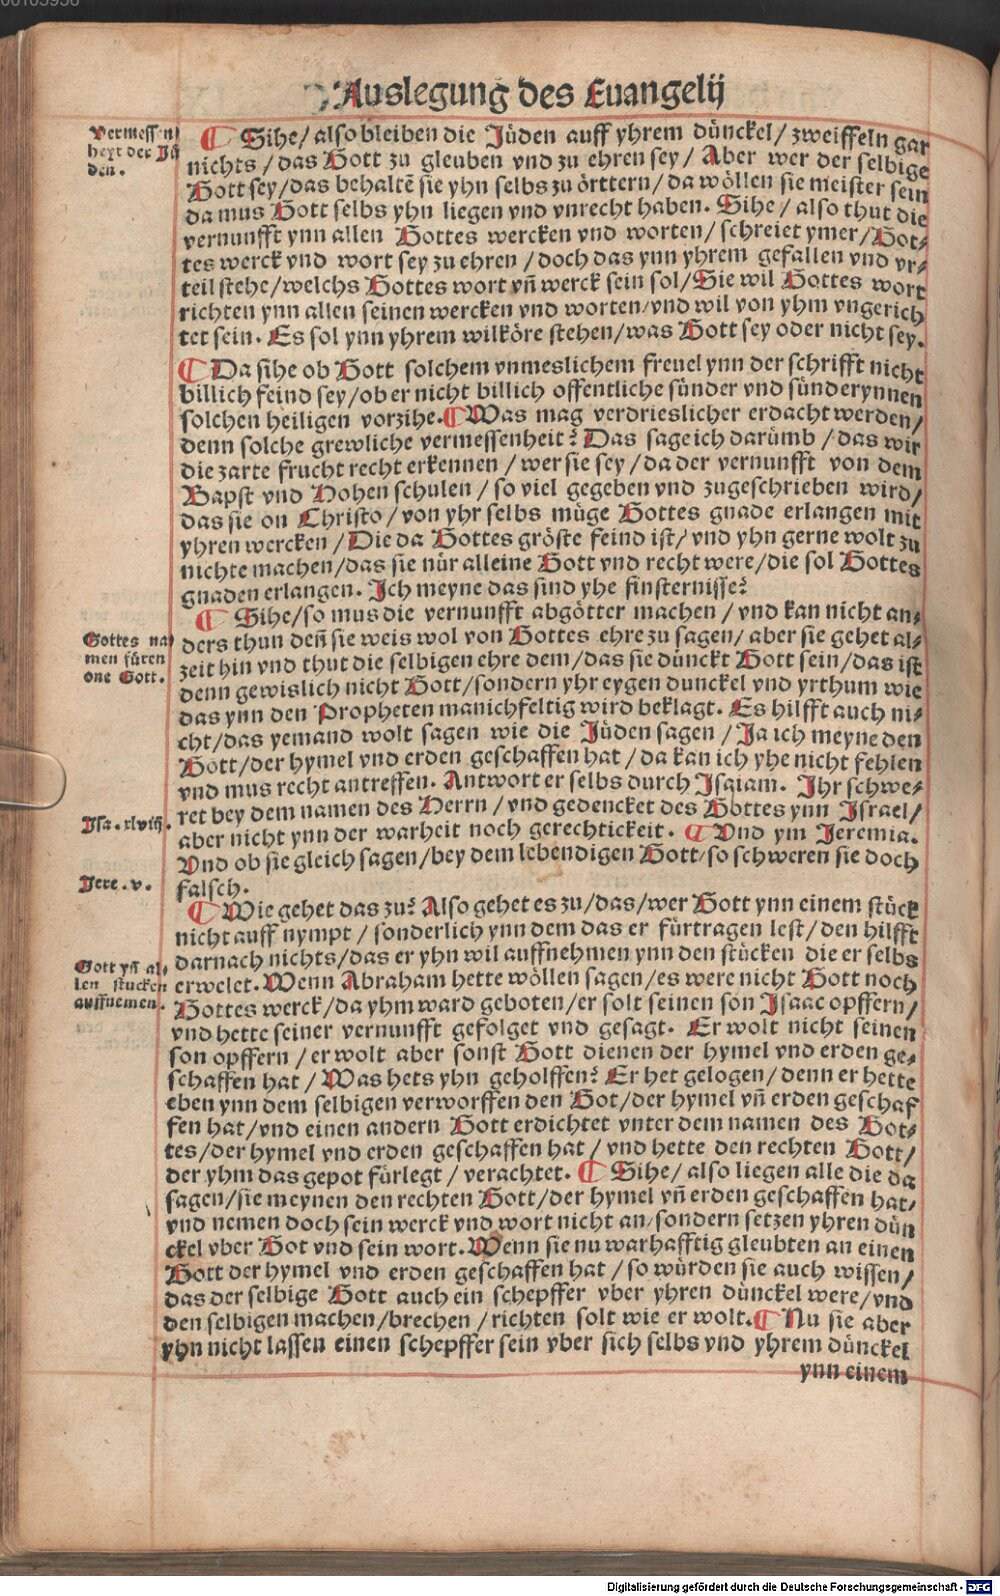 00103956
Auslegung des Euangelij
Vermessen
heyt der Jü
den.
¶ Sihe/ also bleiben die Jüden auff yhrem dünckel/ zweiffeln gar
nichts/ das Gott zu gleuben vnd zu ehren sey/ Aber wer der selbige
Gott sey/ das behaltē sie yhn selbs zu örttern/ da wöllen sie meister sein
da mus Gott selbs yhn liegen vnd vnrecht haben. Sihe/ also thut die
vernunfft ynn allen Gottes wercken vnd worten/ schreiet ymer/ Got⸗
tes werck vnd wort sey zu ehren/ doch das ynn yhrem gefallen vnd vr⸗
teil stehe/ welchs Gottes wort vñ werck sein sol/ Sie wil Gottes wort
richten ynn allen seinen wercken vnd worten/ vnd wil von yhm vngerich
tet sein. Es sol ynn yhrem wilköre stehen/ was Gott sey oder nicht sey.
¶ Da sihe ob Gott solchem vnmeslichem freuel ynn der schrifft nicht
billich feind sey/ ob er nicht billich offentliche sünder vnd sünderynnen
solchen heiligen vorzihe. ¶ Was mag verdrieslicher erdacht werden/
denn solche grewliche vermessenheit? Das sage ich darümb/ das wir
die zarte frucht recht erkennen/ wer sie sey/ da der vernunfft von dem
Bapst vnd Hohen schulen/ so viel gegeben vnd zugeschrieben wird/
das sie on Christo/ von yhr selbs müge Gottes gnade erlangen mit
yhren wercken/ Die da Gottes gröste feind ist/ vnd yhn gerne wolt zu
nichte machen/ das sie nür alleine Gott vnd recht were/ die sol Gottes
gnaden erlangen. Ich meyne das sind yhe finsternisse?
¶ Sihe/ so mus die vernunfft abgötter machen/ vnd kan nicht an⸗
Gottes na
men füren
one Gott.
ders thun deñ sie weis wol von Gottes ehre zu sagen/ aber sie gehet al⸗
zeit hin vnd thut die selbigen ehre dem/ das sie dünckt Gott sein/ das ist
denn gewislich nicht Gott/ sondern yhr eygen dunckel vnd yrthum wie
das ynn den Propheten manichfeltig wird beklagt. Es hilfft auch ni⸗
cht/ das yemand wolt sagen wie die Jüden sagen/ Ja ich meyne den
Gott/ der hymel vnd erden geschaffen hat/ da kan ich yhe nicht fehlen
vnd mus recht antreffen. Antwort er selbs durch Isaiam. Ihr schwe⸗
Jsa. xlviij.
ret bey dem namen des Herrn/ vnd gedencket des Gottes ynn Israel/
aber nicht ynn der warheit noch gerechtickeit. ¶ Vnd ym Jeremia.
Vnd ob sie gleich sagen/ bey dem lebendigen Gott/ so schweren sie doch
Jere. v.
falsch.
¶ Wie gehet das zu? Also gehet es zu/ das/ wer Gott ynn einem stück
nicht auff nympt/ sonderlich ynn dem das er fürtragen lest/ den hilfft
Gott yñ al⸗
len stucken
auffnemen.
darnach nichts/ das er yhn wil auffnehmen ynn den stücken die er selbs
erwelet. Wenn Abraham hette wöllen sagen/ es were nicht Gott noch
Gottes werck/ da yhm ward geboten/ er solt seinen son Isaac opffern/
vnd hette seiner vernunfft gefolget vnd gesagt. Er wolt nicht seinen
son opffern/ er wolt aber sonst Gott dienen der hymel vnd erden ge⸗
schaffen hat/ Was hets yhn geholffen? Er het gelogen/ denn er hette
eben ynn dem selbigen verworffen den Got/ der hymel vñ erden geschaf
fen hat/ vnd einen andern Gott erdichtet vnter dem namen des Got⸗
tes/ der hymel vnd erden geschaffen hat/ vnd hette den rechten Gott/
der yhm das gepot fürlegt/ verachtet. ¶ Sihe/ also liegen alle die da
sagen/ sie meynen den rechten Gott/ der hymel vñ erden geschaffen hat/
vnd nemen doch sein werck vnd wort nicht an/ sondern setzen yhren dün
ckel vber Got vnd sein wort. Wenn sie nu warhafftig gleubten an einen
Gott der hymel vnd erden geschaffen hat/ so würden sie auch wissen/
das der selbige Gott auch ein schepffer vber yhren dünckel were/ vnd
den selbigen machen/ brechen/ richten solt wie er wolt. ¶ Nu sie aber
yhn nicht lassen einen schepffer sein vber sich selbs vnd yhrem dünckel
ynn einem
Digitalisierung gefördert durch die Deutsche Forschungsgemeinschaft - DFG